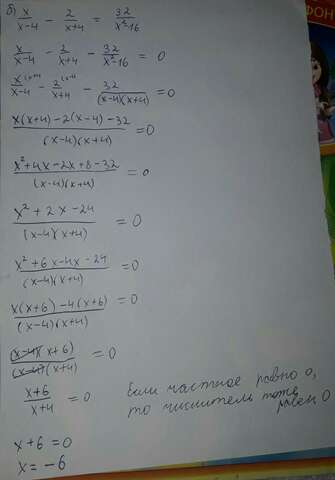 б) x/(x-4) - 2/(x+4) = 32/(x²-16)
x/(x-4) - 2/(x+4) - 32/(x²-16) = 0
x^(x+4)/(x-4) - 2^(x-4)/(x+4) - 32/((x-4)(x+4)) = 0
(x(x+4)-2(x-4)-32)/((x-4)(x+4)) = 0
(x²+4x-2x+8-32)/((x-4)(x+4)) = 0
(x²+2x-24)/((x-4)(x+4)) = 0
(x²+6x-4x-24)/((x-4)(x+4)) = 0
(x(x+6)-4(x+6))/((x-4)(x+4)) = 0
((x-4)(x+6))/((x-4)(x+4)) = 0
(x+6)/(x+4) = 0
Если частное равно 0,
то числитель тоже
равен 0
x+6=0
x=-6
ФОН